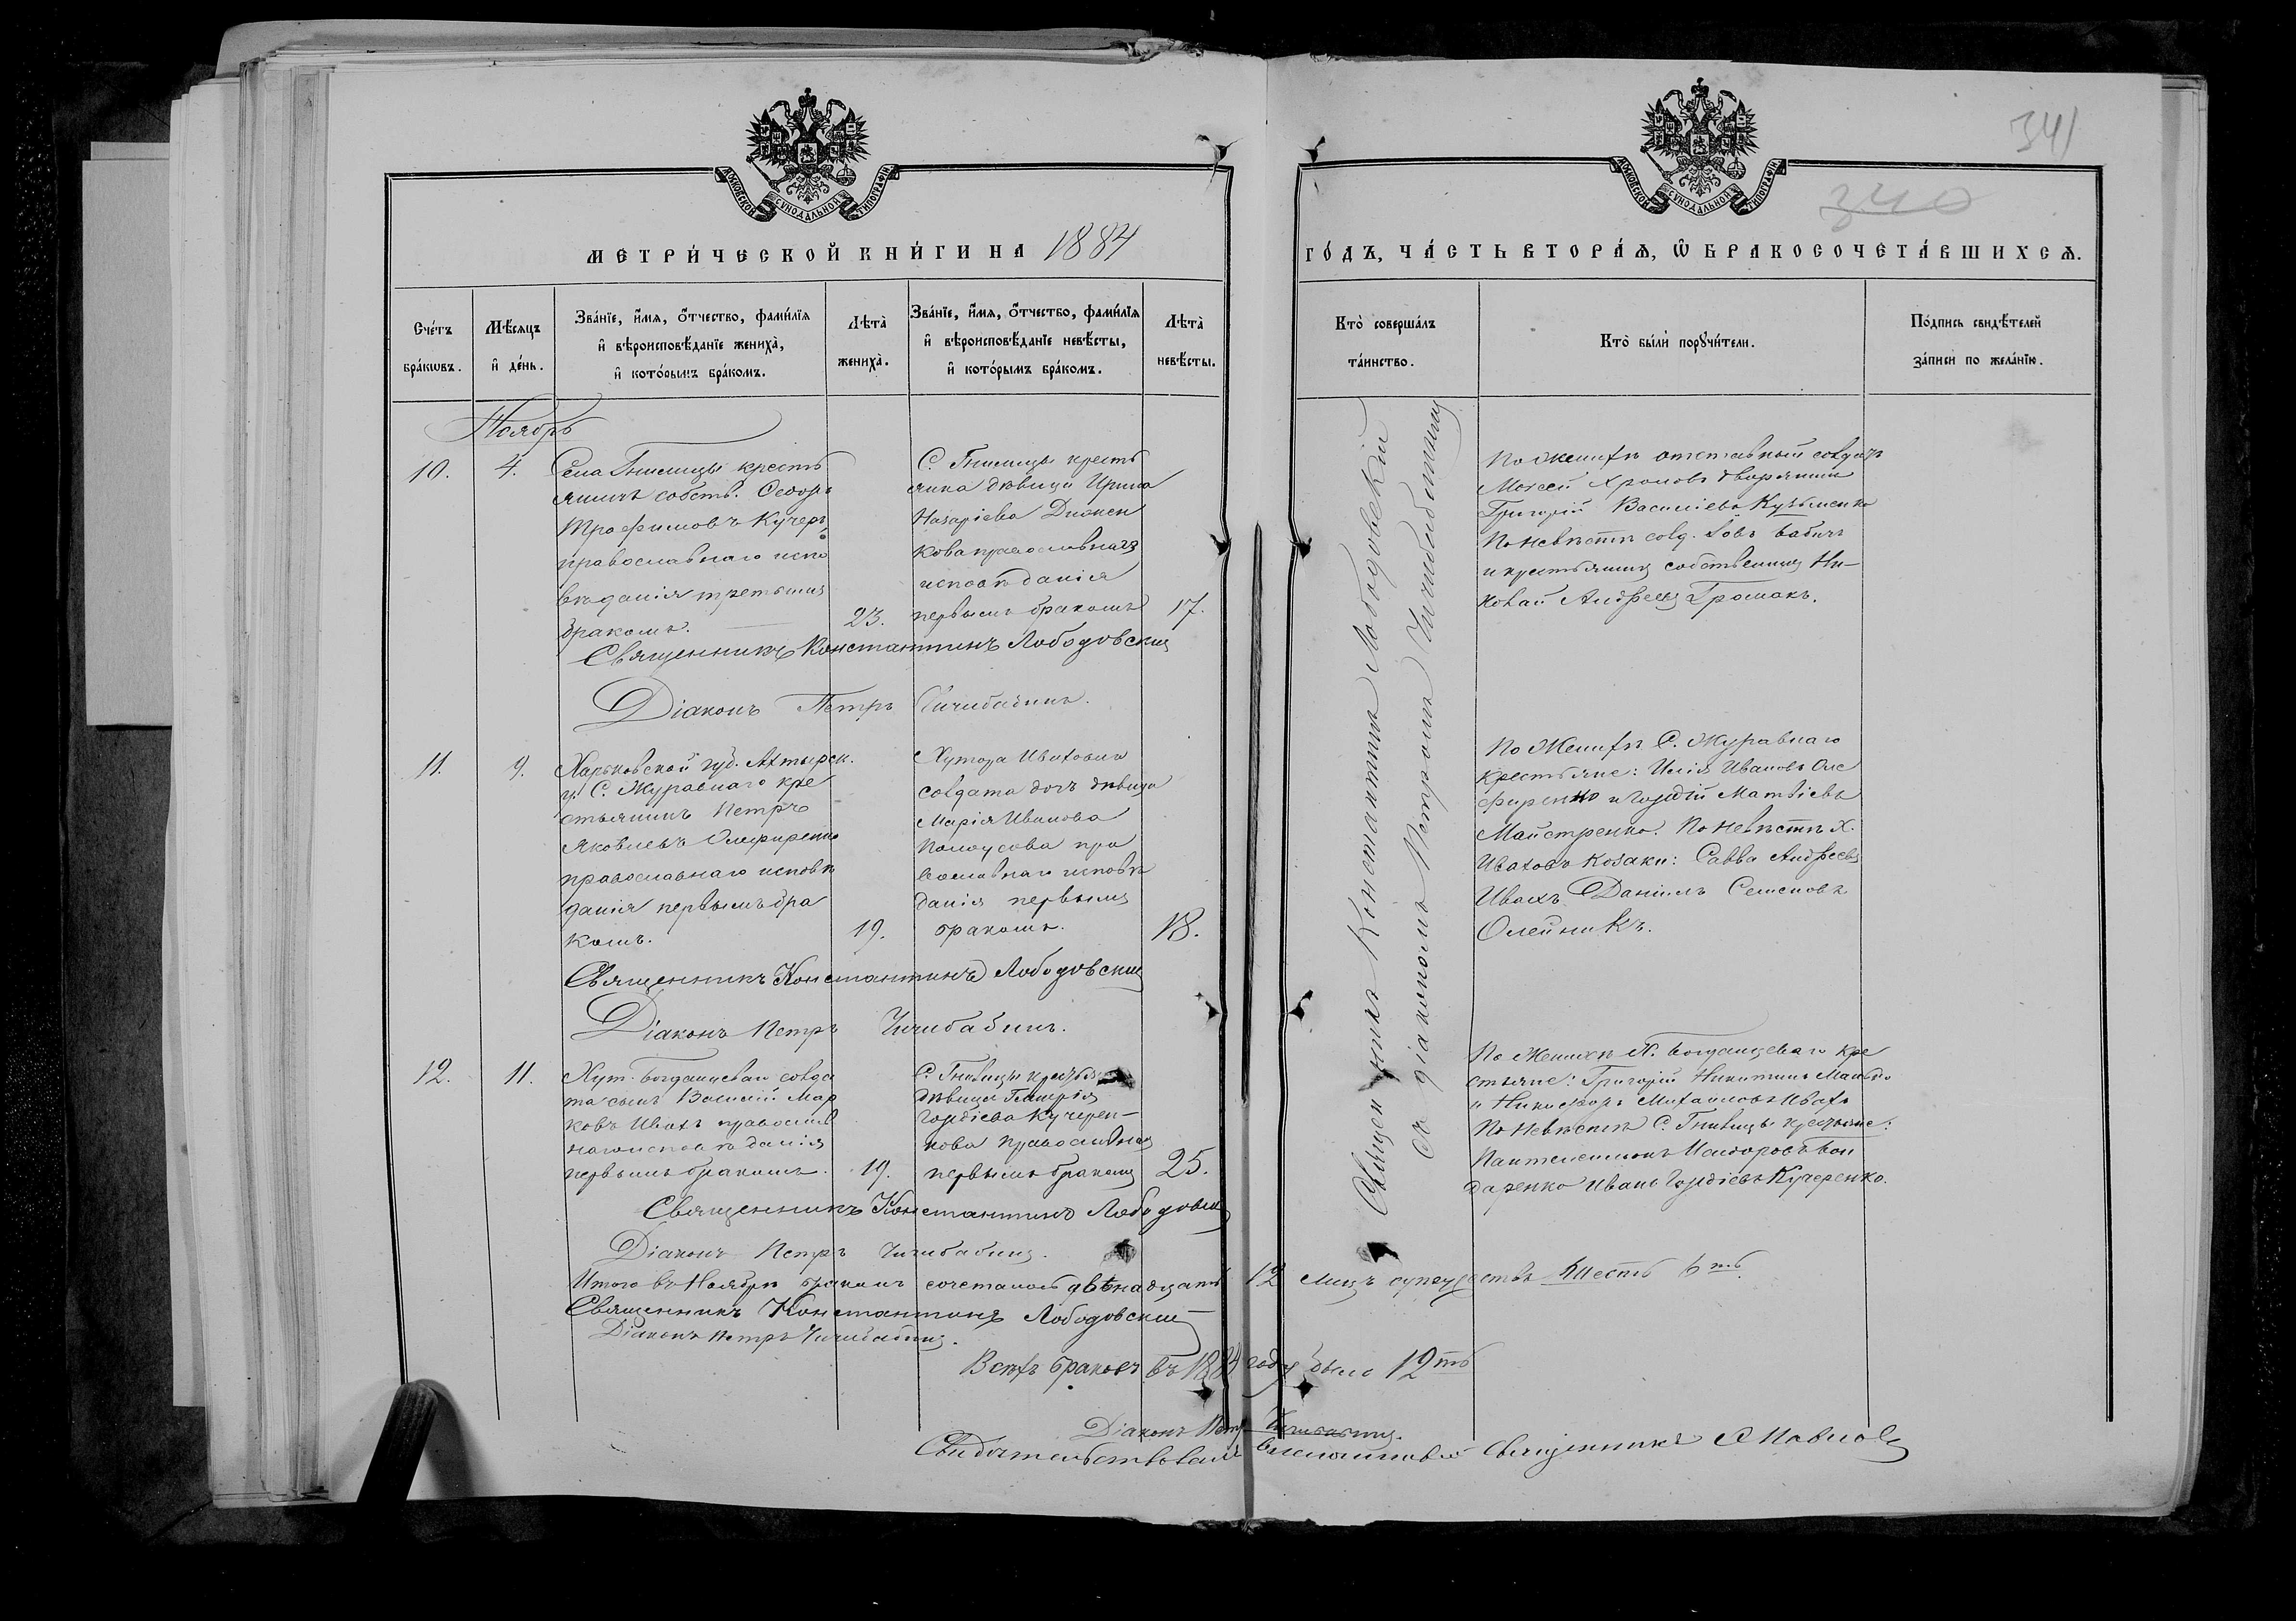 341
340
МОСКОВСКОЙ СѴНОДАЛЬНОЙ ТИПОГРАФІИ
МОСКОВСКОЙ СѴНОДАЛЬНОЙ ТИПОГРАФІИ
МЕТРИ́ЧЕСКОЙ КНИ́ГИ НА 1884
ГО́ДЪ, ЧА́СТЬ ВТОРА́Ѧ, Ѽ БРАКОСОЧЕТА́ВШИХСѦ.
Сче́тъ
бра́кѡвъ.
Мѣ́сяцъ
и҆ де́нь.
Зва́нїе, и҆́мя, ѻ҆́тчество, фами́лїя
и҆ вѣроисповѣ́данїе жениха̀,
и҆ кото́рымъ бра́комъ.
Лѣта̀
жениха̀.
Зва́нїе, и҆́мя, ѻ҆́тчество, фами́лїя
и҆ вѣроисповѣ́данїе невѣ́сты,
и҆ кото́рымъ бра́комъ.
Лѣта̀
невѣ́сты.
Кто̀ соверша́лъ
та́инство.
Кто̀ бы́ли порꙋчи́тели.
По́дпись свидѣ́телей
за́писи по жела́нїю.
Ноябрь
10.
4.
Села Гнилицы кресть
янинъ собств. Ѳеодоръ
Трофимовъ Кучеръ,
православнаго испо
вѣданія третьимъ
бракомъ.
23.
С. Гнилицы кресть
янка дѣвица Ирина
Назаріева Дионен
кова православнаго
исповѣданія
первымъ бракомъ
17.
По женихѣ отставный солдатъ
Моисей Хроновъ дворянинъ
Григорій Василіевъ Кузьменко
По невѣстѣ солд. Іовъ Бабичъ
и крестьянинъ собственникъ Ни-
колай Андреевъ Громакъ.
Священникъ Константинъ Лободовскій
Діаконъ Петръ Чичибабинъ.
11.
9.
Харьковской губ. Ахтырск.
у. С. Журавнаго кре
стьянинъ Петръ
Яковлевъ Олефиренко
православнаго исповѣ
данія первымъ бра
комъ.
19.
Хутора Ивахова
солдата дочь дѣвица
Марія Иванова
православнаго исповѣ
данія первымъ
бракомъ.
18.
По Женихѣ С. Журавнаго
крестьяне: Илія Ивановъ Оле
фиренко и Гордій Матвіевъ
Майстренко. По невѣстѣ Х.
Ивахова козаки: Савва Андреевъ
Ивахъ Даніилъ Семеновъ
Олейникъ.
Священникъ Константинъ Лободовскій
Діаконъ Петръ Чичибабинъ.
Священникъ Константинъ Лободовскій
съ діакономъ Петромъ Чичибабинымъ
12.
11.
Хут. Богданцеваго солда
та сынъ Василій Мар
ковъ Ивахъ православ
наго исповѣданія
первымъ бракомъ.
19.
С. Гнилицы крестьян
дѣвица Гликерія
Гордіева Кучерен-
кова православная
первымъ бракомъ
25.
По Женихѣ Х. Богданцеваго кре
стьяне: Григорій Никитинъ
и Никифоръ Михаиловъ Ивахъ
По Невѣстѣ С. Гнилицы крестьяне:
Пантелеимонъ Исидоровъ Бон
даренко Иванъ Гордіевъ Кучеренко.
Священникъ Константинъ Лободовскій
Діаконъ Петръ Чичибабинъ.
Итого въ Ноябрѣ бракомъ сочеталось двѣнадцать 12 лицъ супружествъ Шесть 6ть.
Священникъ Константинъ Лободовскій
Діаконъ Петръ Чичибабинъ.
Всѣхъ браковъ въ 1884 году было 12ть
Діаконъ Петръ Чичибабинъ.
Свидѣтельствовалъ Священникъ